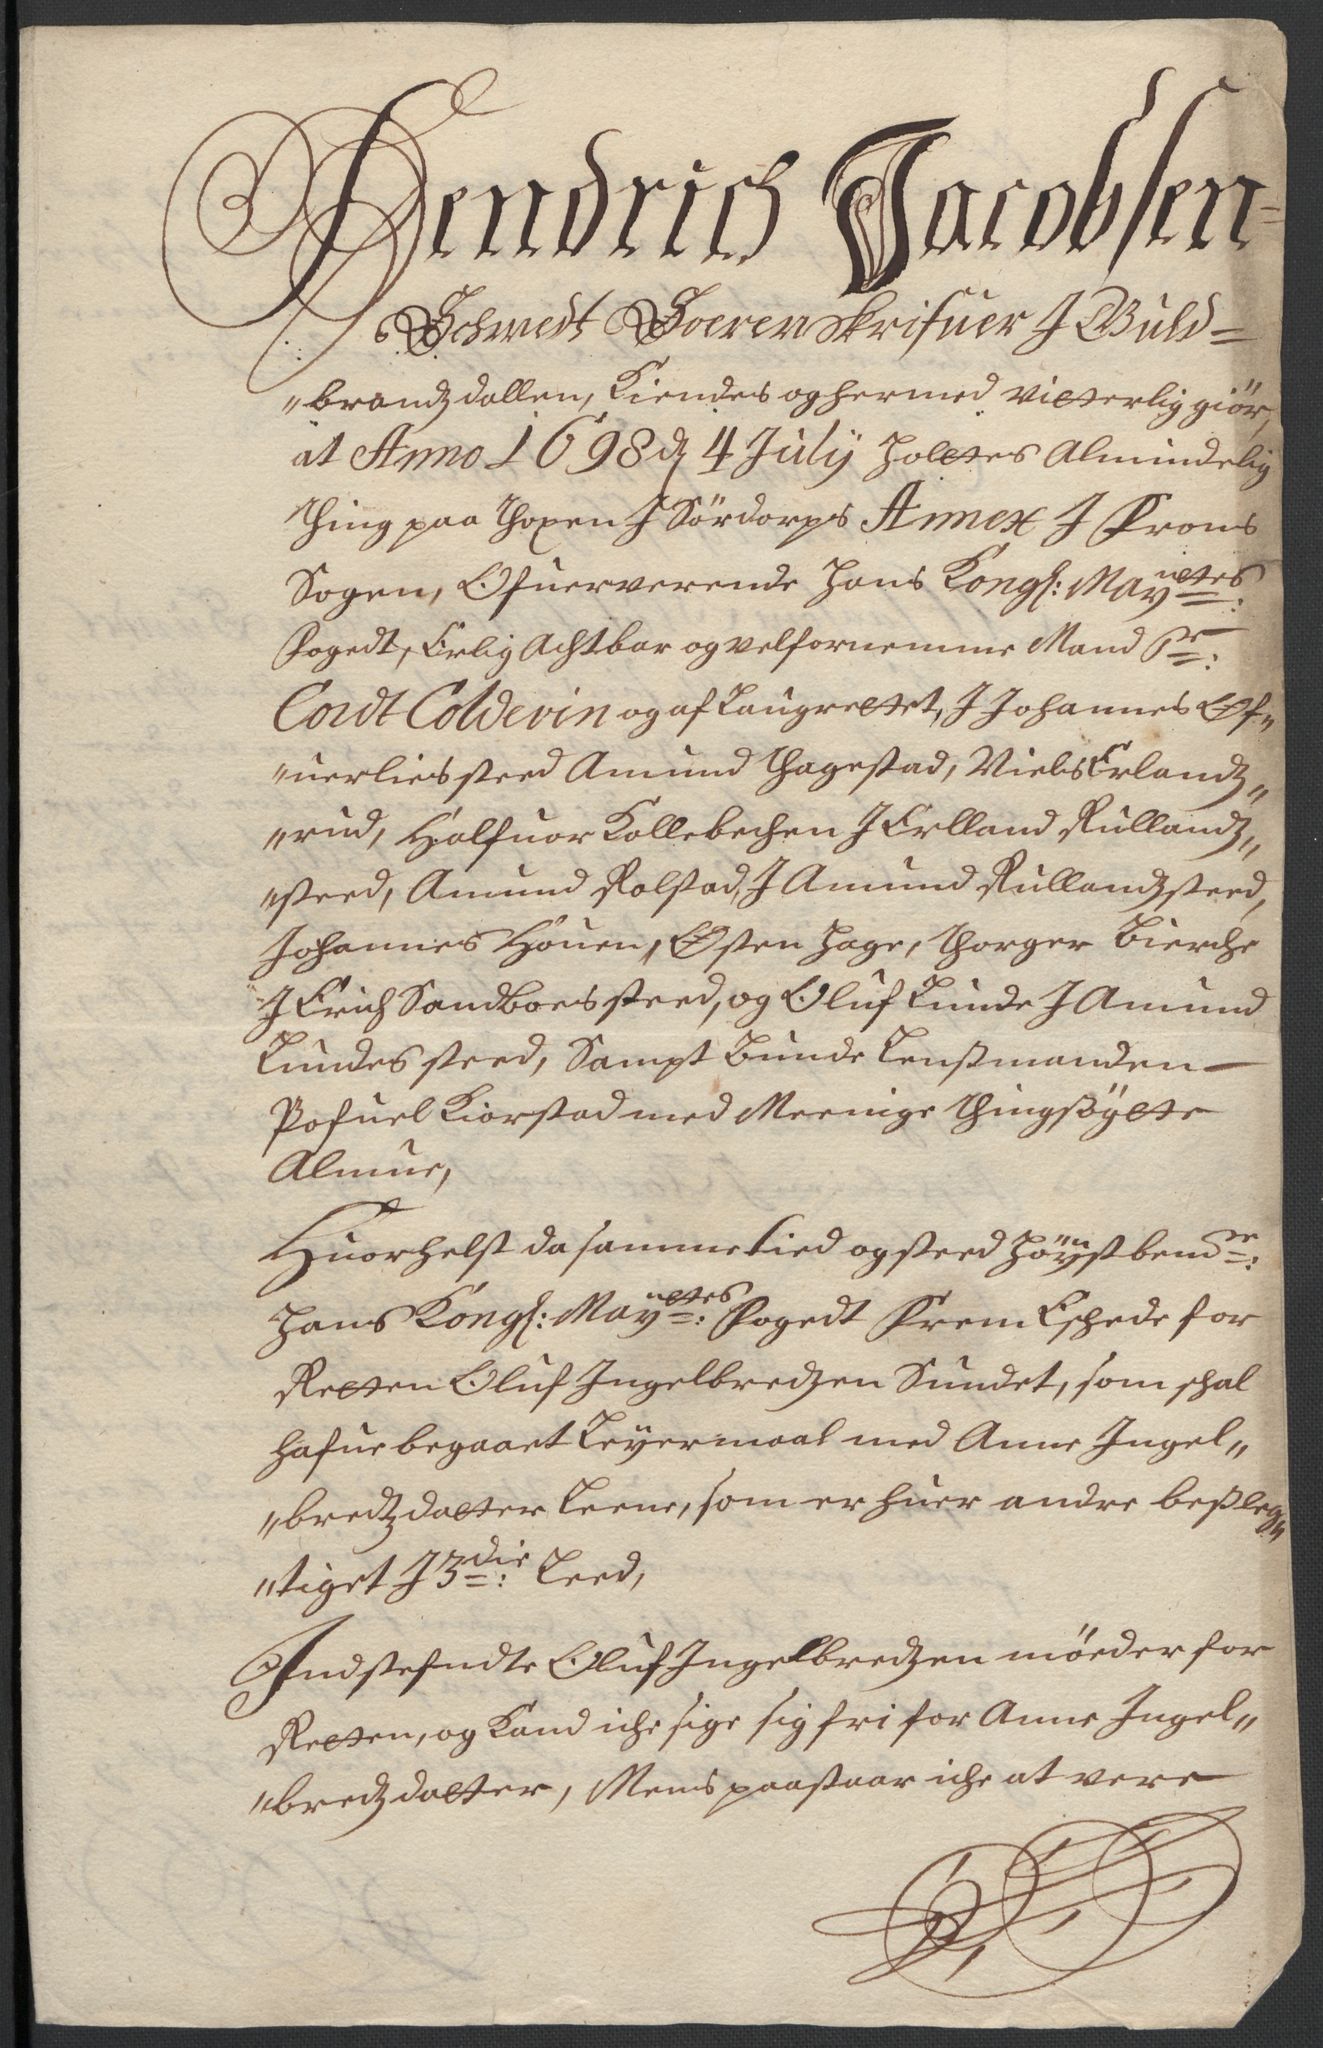 Hendrich Jacobsen
Schmedt Soerenskrifuer J Guld=
"brandz dallen, Kiendes og hermed vitterlig giör,
at Anno 1698 d 4 July holtes Almindelig
thing paa Thoxen J Sördorps Annex J Frons
Sogen, Ofuerverende Hans Kongl: May:ttes
Fogedt, Erlig Achtbar og velfornemme Mand Sr:
Cordt Coldevin og af Laugrettet, J Johannes Of"
"uerlies steed Amund Hagestad, Niels Erlandz"
"rud, Halfuor Kollebechen J Erlland Rullandz"
"steed, Amund Rolstad, J Amund Rullandz steed,
Johannes Houen, Østen Hage, Thorger Bierche
J Erich Sandboes steed, og Oluf Lunde J Amund
Lundes steed, Sampt Bunde Lenssmanden
Pofuel Kiorstad med Meenige thingsögte
Almue,
Huorhelst da samme tied og steed höystbemte:
Hans Kongl: May:ttes Fogedt Frem Eschede for
Retten Oluf Ingelbredzen Sundet, som schal
hafue begaaet Leyermaal med Anne Ingel"
"bredz datter Leene, som er huer andre besleg"
"tiget J 3die: Leed,
Indstefndte Oluf Ingelbredzen möeder for
Retten, og Kand iche sige sig fri for Anne Ingel"
"bredz datter, Mens paastaar iche at vere